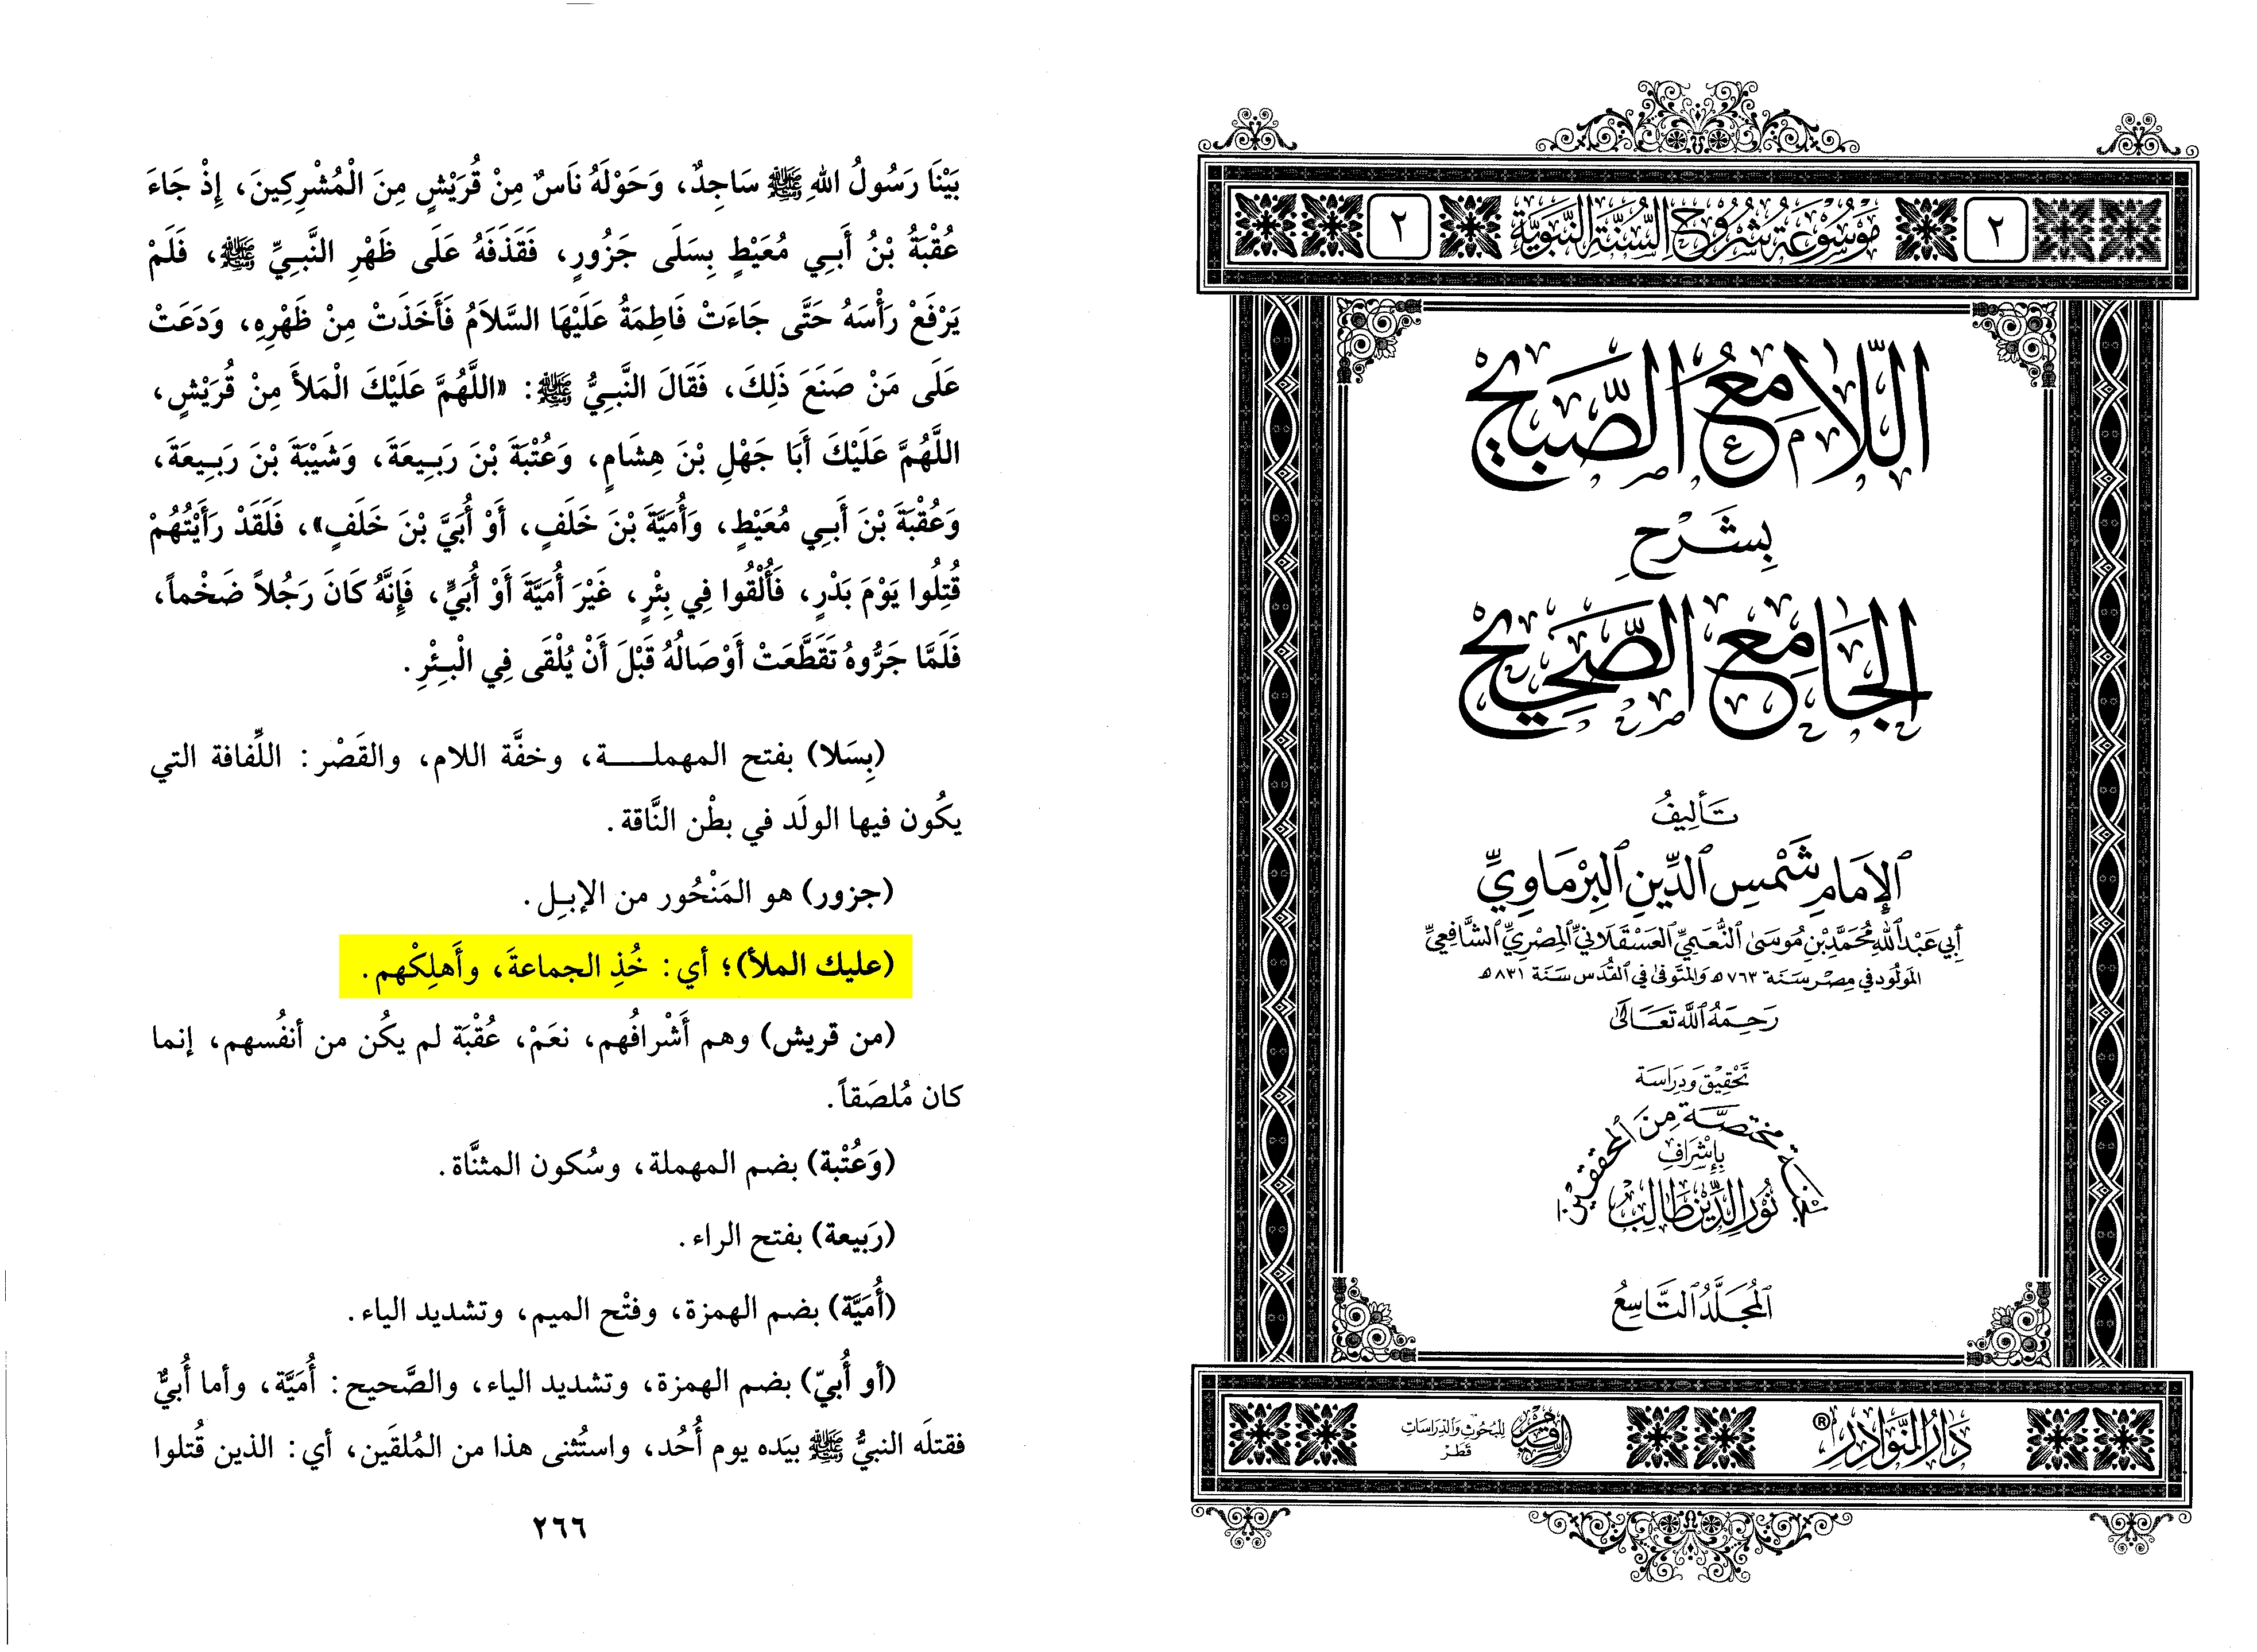 موسوعة شروح السنة النبوية
٢
٢
اللَّامع الصَّبيح
بشَرْحِ
الجامع الصَّحيح
تَأليفُ
الإمَامِ شَمْسِ الدِّينِ البِرْمَاوِيِّ
أبي عَبْدِ اللهِ مُحَمَّدِ بْنِ مُوسَى النُّعَيمِيِّ العَسْقَلَانِيِّ المِصْرِيِّ الشَّافِعِيِّ
المَولُود في مِصْر سَنَة ٧٦٣ هـ وَالمتَوفى في القُدس سَنَة ٨٣١ هـ
رَحِمَهُ اللهُ تَعَالَىٰ
تَحْقِيْق وَدِرَاسَة
لجنَة مختصَّة مِنَ المحققين
بإشْرَافِ
نُوْرِ الدِّيْن طَالِبْ
المُجَلَّدُ التَّاسِعُ
دَارُ النَّوَادِرِ ®
للبُحوث وَالدِّرَاسَات
قَطَر
بَيْنَا رَسُولُ اللهِ ﷺ سَاجِدٌ، وَحَوْلَهُ نَاسٌ مِنْ قُرَيْشٍ مِنَ الْمُشْرِكِينَ، إِذْ جَاءَ
عُقْبَةُ بْنُ أَبِي مُعَيْطٍ بِسَلَى جَزُورٍ، فَقَذَفَهُ عَلَى ظَهْرِ النَّبِيِّ ﷺ، فَلَمْ
يَرْفَعْ رَأْسَهُ حَتَّى جَاءَتْ فَاطِمَةُ عَلَيْهَا السَّلاَمُ فَأَخَذَتْ مِنْ ظَهْرِهِ، وَدَعَتْ
عَلَى مَنْ صَنَعَ ذَلِكَ، فَقَالَ النَّبِيُّ ﷺ: «اللَّهُمَّ عَلَيْكَ الْمَلأَ مِنْ قُرَيْشٍ،
اللَّهُمَّ عَلَيْكَ أَبَا جَهْلِ بْنَ هِشَامٍ، وَعُتْبَةَ بْنَ رَبِيعَةَ، وَشَيْبَةَ بْنَ رَبِيعَةَ،
وَعُقْبَةَ بْنَ أَبِي مُعَيْطٍ، وَأُمَيَّةَ بْنَ خَلَفٍ، أَوْ أُبَيَّ بْنَ خَلَفٍ»، فَلَقَدْ رَأَيْتُهُمْ
قُتِلُوا يَوْمَ بَدْرٍ، فَأُلْقُوا فِي بِئْرٍ، غَيْرَ أُمَيَّةَ أَوْ أُبَيٍّ، فَإِنَّهُ كَانَ رَجُلاً ضَخْماً،
فَلَمَّا جَرُّوهُ تَقَطَّعَتْ أَوْصَالُهُ قَبْلَ أَنْ يُلْقَى فِي الْبِئْرِ.
(بِسَلا) بفتح المهملـــة، وخفَّة اللام، والقَصْر: اللِّفافة التي
يكُون فيها الولَد في بطْن النَّاقة.
(جزور) هو المَنْحُور من الإبِل.
(عليك الملأ)؛ أي: خُذِ الجماعةَ، وأَهلِكْهم.
(من قريش) وهم أَشْرافُهم، نعَمْ، عُقْبَة لم يكُن من أنفُسهم، إنما
كان مُلصَقاً.
(وَعُتْبة) بضم المهملة، وسُكون المثنَّاة.
(رَبيعة) بفتح الراء.
(أُمَيَّة) بضم الهمزة، وفتْح الميم، وتشديد الياء.
(أو أُبيّ) بضم الهمزة، وتشديد الياء، والصَّحيح: أُمَيَّة، وأما أُبيٌّ
فقتلَه النبيُّ ﷺ بيَده يوم أُحُد، واستُثنى هذا من المُلقَين، أي: الذين قُتلوا
٢٦٦